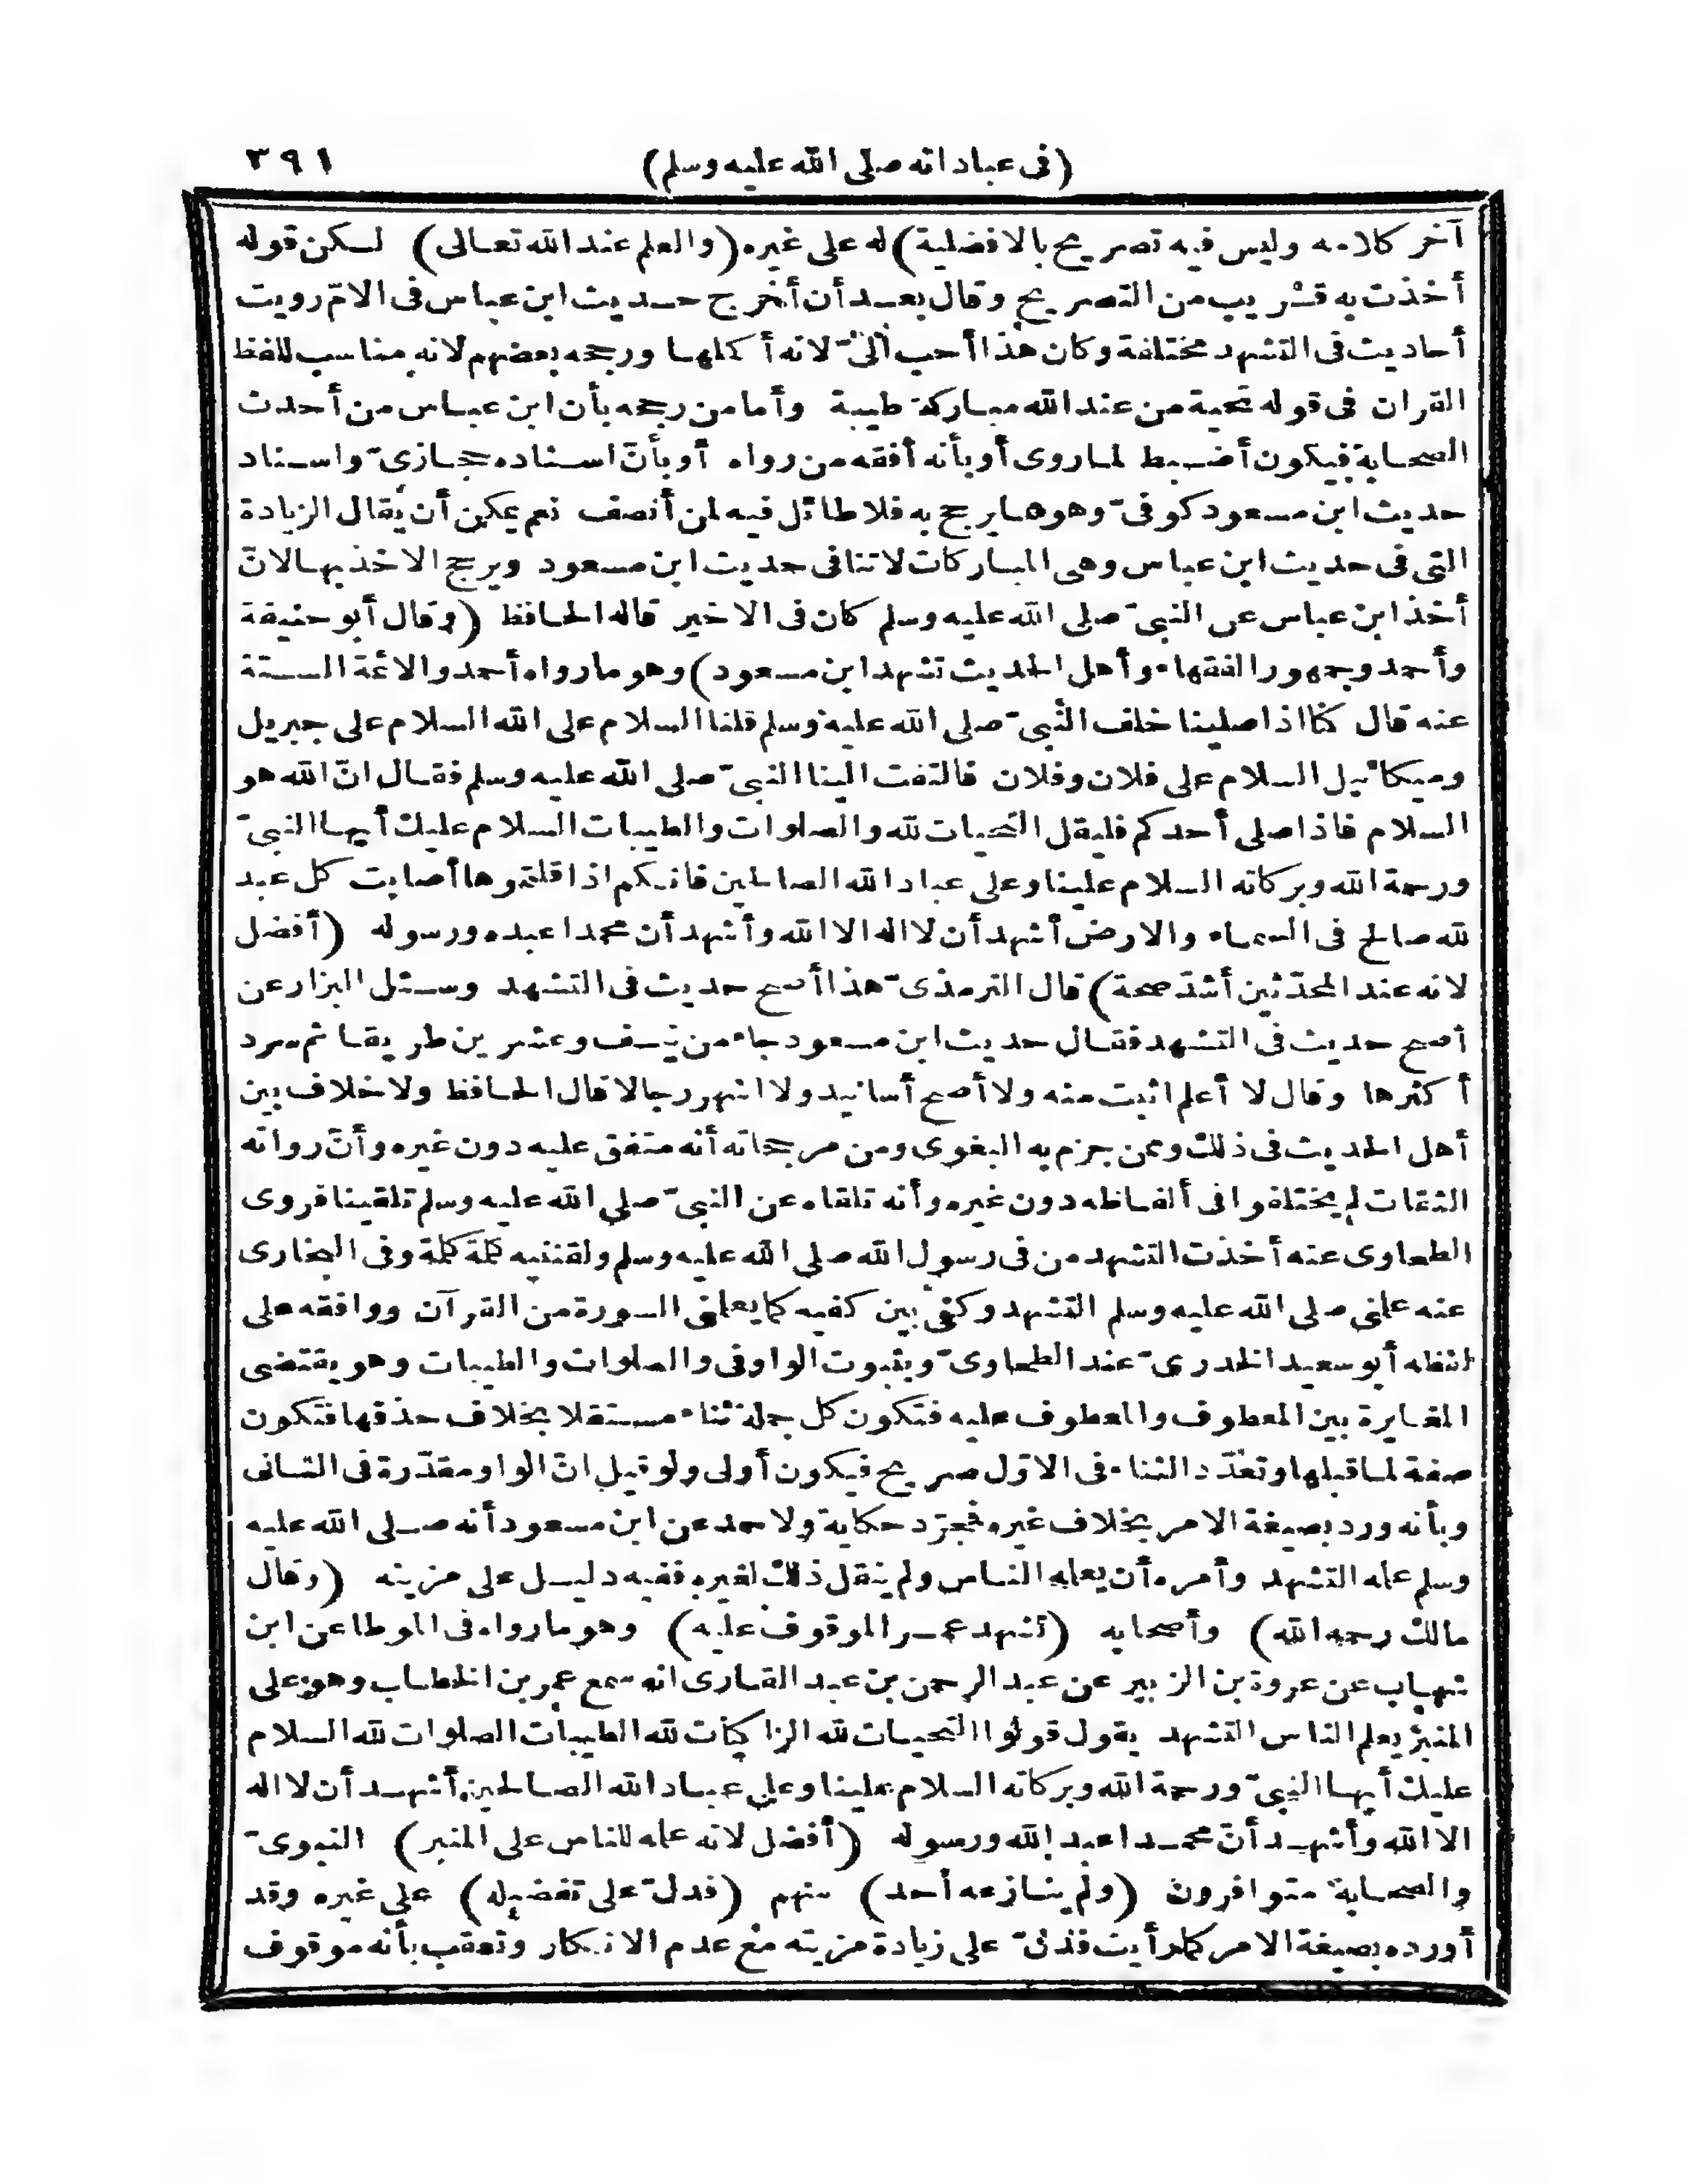 (فى عباداته صلى الله عليه وسلم) ٣٩١
آخر كلامه وليس فيه تصريح بالافضلية) له على غيره (والعلم عند الله تعالى) لكن قوله
أخذت به قريب من التصريح وقال بعد أن أخرج حديث ابن عباس فى الامّ رويت
أحاديث فى التشهد مختلفة وكان هذا أحب الىّ لانه أكملها ورجحه بعضهم لانه مناسب للفظ
القران فى قوله تحية من عند الله مباركة طيبة وأما من رجحه بأن ابن عباس من أحدث
الصحابة فيكون أضبط لما روى أو بأنه أفقه من رواه أو بأنّ اسناده حجازىّ واسناد
حديث ابن مسعود كوفىّ وهو مما يرجح به فلا طائل فيه لمن أنصف نعم يمكن أن يقال الزيادة
التى فى حديث ابن عباس وهى المباركات لا تنافى حديث ابن مسعود ويرجح الاخذ بها لانّ
أخذ ابن عباس عن النبىّ صلى الله عليه وسلم كان فى الاخير قاله الحافظ (وقال أبو حنيفة
وأحمد وجمهور الفقهاء وأهل الحديث تشهد ابن مسعود) وهو ما رواه أحمد والائمة الستة
عنه قال كنا اذا صلينا خلف النبىّ صلى الله عليه وسلم قلنا السلام على الله السلام على جبريل
وميكائيل السلام على فلان وفلان فالتفت الينا النبىّ صلى الله عليه وسلم فقال انّ الله هو
السلام فاذا صلى أحدكم فليقل التحيات لله والصلوات والطيبات السلام عليك أيها النبىّ
ورحمة الله وبركاته السلام علينا وعلى عباد الله الصالحين فانكم اذا قلتموها أصابت كل عبد
لله صالح فى السماء والارض أشهد أن لا اله الا الله وأشهد أن محمدا عبده ورسوله (أفضل
لانه عند المحدّثين أشدّ صحة) قال الترمذىّ هذا أصح حديث فى التشهد وسئل البزار عن
أصح حديث فى التشهد فقال حديث ابن مسعود جاء من نيف وعشرين طريقا ثم سرد
أكثرها وقال لا أعلم اثبت منه ولا أصح أسانيد ولا اشهر رجالا قال الحافظ ولا خلاف بين
أهل الحديث فى ذلك وممن جزم به البغوى ومن مرجحاته أنه متفق عليه دون غيره وأنّ رواته
الثقات لم يختلفوا فى ألفاظه دون غيره وأنه تلقاه عن النبىّ صلى الله عليه وسلم تلقينا فروى
الطحاوى عنه أخذت التشهد من فى رسول الله صلى الله عليه وسلم ولقننيه كلمة كلمة وفى البخارى
عنه علمنى صلى الله عليه وسلم التشهد وكفى بين كفيه كما يعلمنى السورة من القرآن ووافقه على
لفظه أبو سعيد الخدرىّ عند الطحاوىّ وبثبوت الواو فى والصلوات والطيبات وهو يقتضى
المغايرة بين المعطوف والمعطوف عليه فتكون كل جملة ثناء مستقلا بخلاف حذفها فتكون
صفة لما قبلها وتعدّد الثناء فى الاوّل صريح فيكون أولى ولو قيل انّ الواو مقدّرة فى الثانى
وبأنه ورد بصيغة الامر بخلاف غيره فمجرّد حكاية ولاحمد عن ابن مسعود أنه صلى الله عليه
وسلم علمه التشهد وأمره أن يعلمه الناس ولم ينقل ذلك لغيره ففيه دليل على مزيته (وقال
مالك رحمه الله) وأصحابه (تشهد عمر الموقوف عليه) وهو ما رواه فى الموطا عن ابن
شهاب عن عروة بن الزبير عن عبد الرحمن بن عبد القارى انه سمع عمر بن الخطاب وهو على
المنبر يعلم الناس التشهد يقول قولوا التحيات لله الزاكيات لله الطيبات الصلوات لله السلام
عليك أيها النبىّ ورحمة الله وبركاته السلام علينا وعلى عباد الله الصالحين أشهد أن لا اله
الا الله وأشهد أنّ محمدا عبد الله ورسوله (أفضل لانه علمه للناس على المنبر) النبوىّ
والصحابة متوافرون (ولم ينازعه أحد) منهم (فدلّ على تفضيله) على غيره وقد
أورده بصيغة الامر كما رأيت فدلّ على زيادة مزيته مع عدم الانكار وتعقب بأنه موقوف